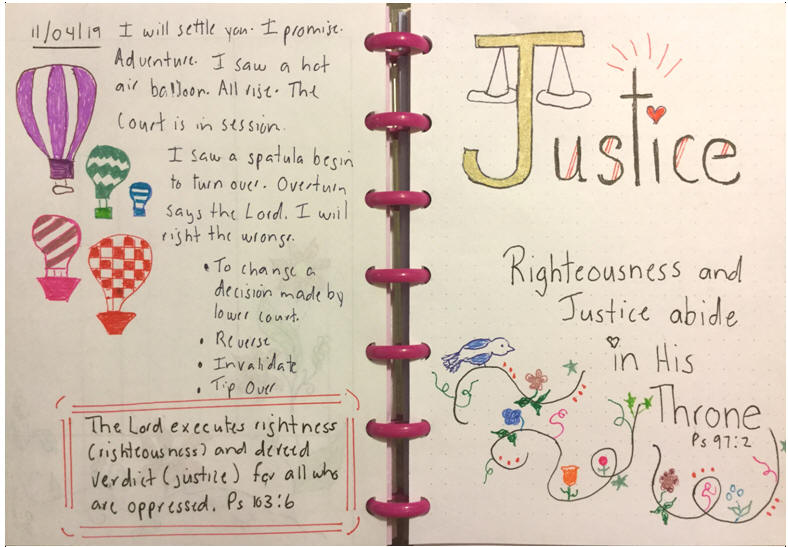 11/04/19 I will settle you. I promise.
Adventure. I saw a hot
air balloon. All rise. The
Court is in session.
I saw a spatula begin
to turn over. Overturn
says the Lord. I will
right the wrongs.
• To change a
decision made by
lower court.
• Reverse
• Invalidate
• Tip Over
The Lord executes rightness
(righteousness) and dereed
verdict (justice) for all who
are oppressed. Ps 103:6
Justice
Righteousness and
Justice abide
in His
Throne
Ps 97:2